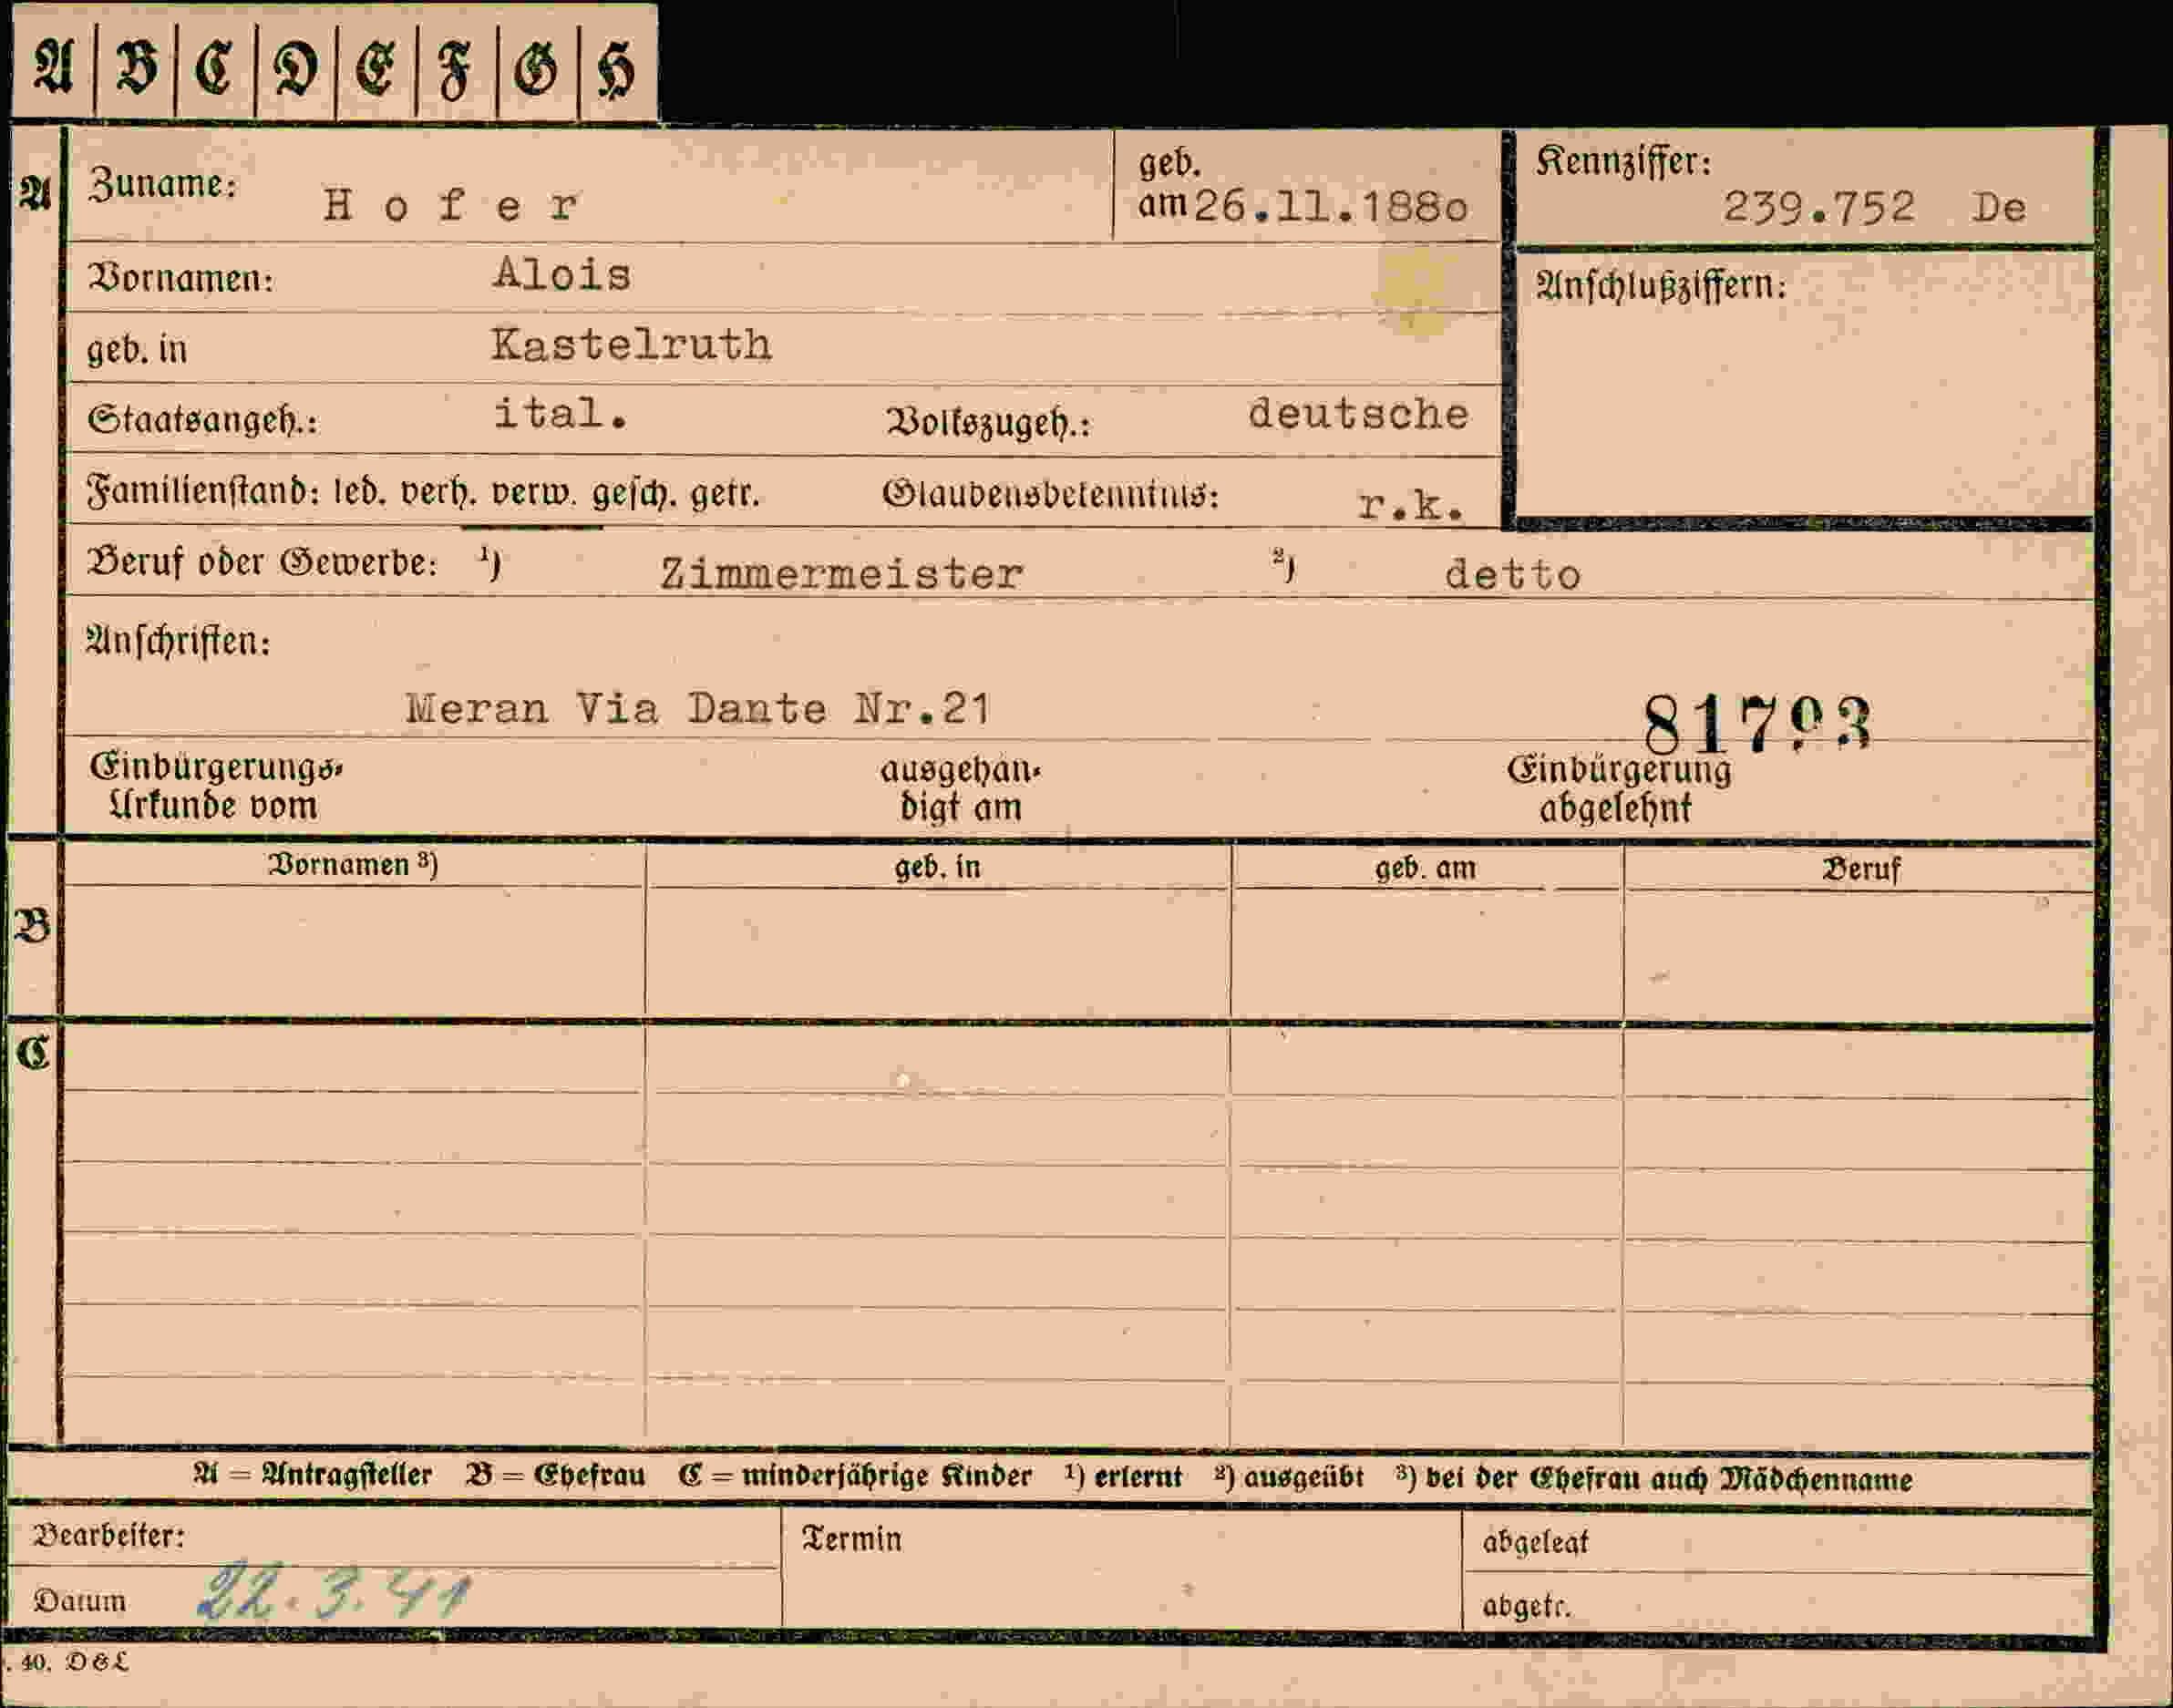 A B C D E F G H
A Zuname: Hofer geb. am 26.11.1880 Kennziffer: 239.752 De
Vornamen: Alois Anschlußziffern:
geb. in Kastelruth
Staatsangeh.: ital. Volkszugeh.: deutsche
Familienstand: led. verh. verw. gesch. getr. Glaubensbekenntnis: r.k.
Beruf oder Gewerbe: ¹) Zimmermeister ²) detto
Anschriften:
Meran Via Dante Nr.21 81793
Einbürgerungs- ausgehän- Einbürgerung
Urkunde vom digt am abgelehnt
Vornamen ³) geb. in geb. am Beruf
B
C
A = Antragsteller B = Ehefrau C = minderjährige Kinder ¹) erlernt ²) ausgeübt ³) bei der Ehefrau auch Mädchenname
Bearbeiter: Termin abgelegt
Datum 22.3.41 abgetr.
. 40. D&L